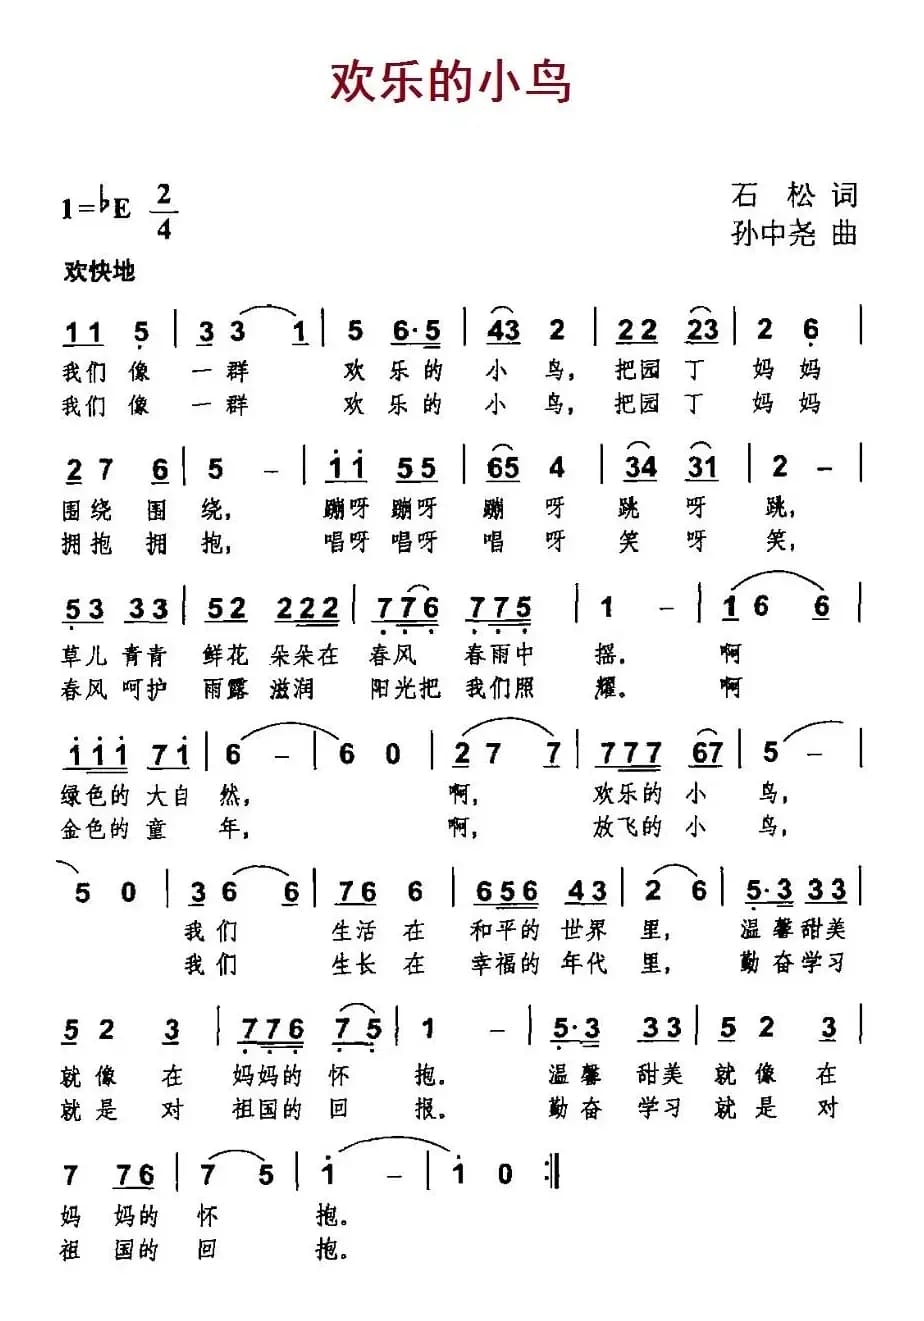 欢乐的小鸟
1=♭E 2/4
石 松 词
孙中尧 曲
欢快地
1 1 5 | 3 3 1 | 5 6·5 | 43 2 | 22 23 | 2 6
我们 像 一 群 欢 乐 的 小 鸟, 把园 丁 妈 妈
我们 像 一 群 欢 乐 的 小 鸟, 把园 丁 妈 妈
2 7 6 | 5 – | 11 55 | 65 4 | 34 31 | 2 –
围 绕 围 绕, 蹦呀 蹦呀 蹦 呀 跳 呀 跳,
拥 抱 拥 抱, 唱呀 唱呀 唱 呀 笑 呀 笑,
53 33 | 52 222 | 776 775 | 1 – | 1 6 6
草儿 青青 鲜花 朵朵在 春风 春雨中 摇. 啊
春风 呵护 雨露 滋润 阳光把 我们照 耀. 啊
111 71 | 6 – | 6 0 | 2 7 7 | 777 67 | 5 –
绿色的 大自 然, 啊, 欢乐的 小 鸟,
金色的 童 年, 啊, 放飞的 小 鸟,
5 0 | 3 6 6 | 76 6 | 656 43 | 2 6 | 5·3 33
我 们 生活 在 和平的 世界 里, 温 馨 甜美
我 们 生长 在 幸福的 年代 里, 勤 奋 学习
5 2 3 | 776 75 | 1 – | 5·3 33 | 5 2 3
就 像 在 妈妈的 怀 抱. 温 馨 甜美 就 像 在
就 是 对 祖国的 回 报. 勤 奋 学习 就 是 对
7 76 | 7 5 | 1 – | 1 0 :‖
妈 妈的 怀 抱.
祖 国的 回 抱.